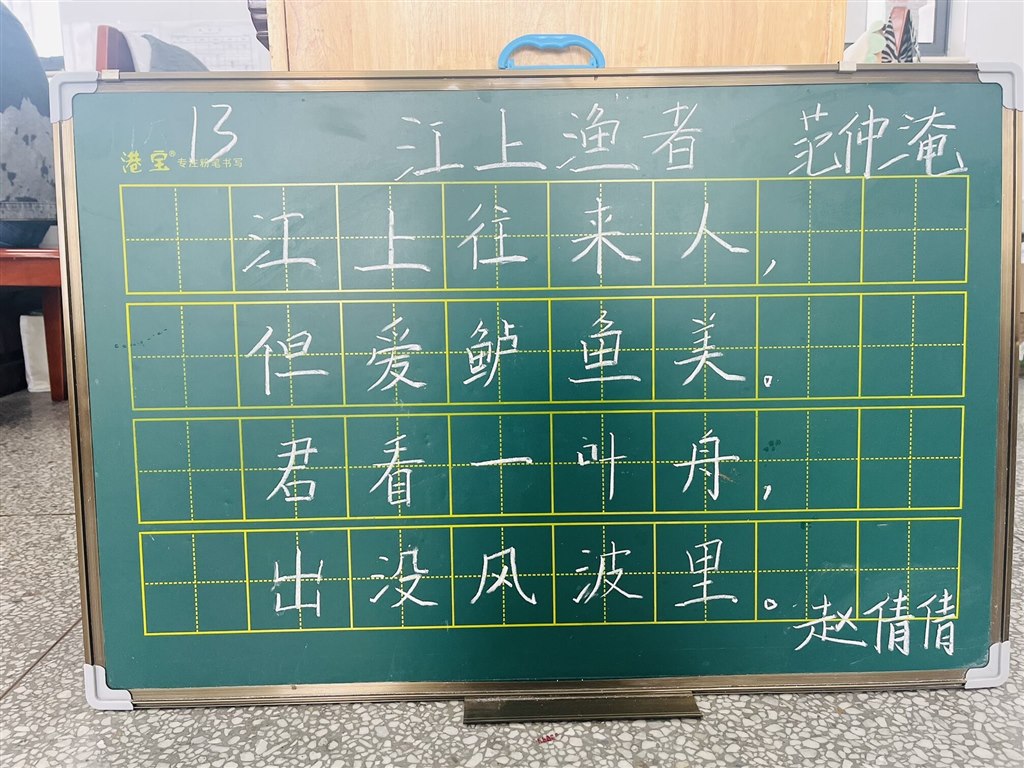 13 江上渔者 范仲淹
港宝® 专注粉笔书写
江上往来人，
但爱鲈鱼美。
君看一叶舟，
出没风波里。
赵倩倩